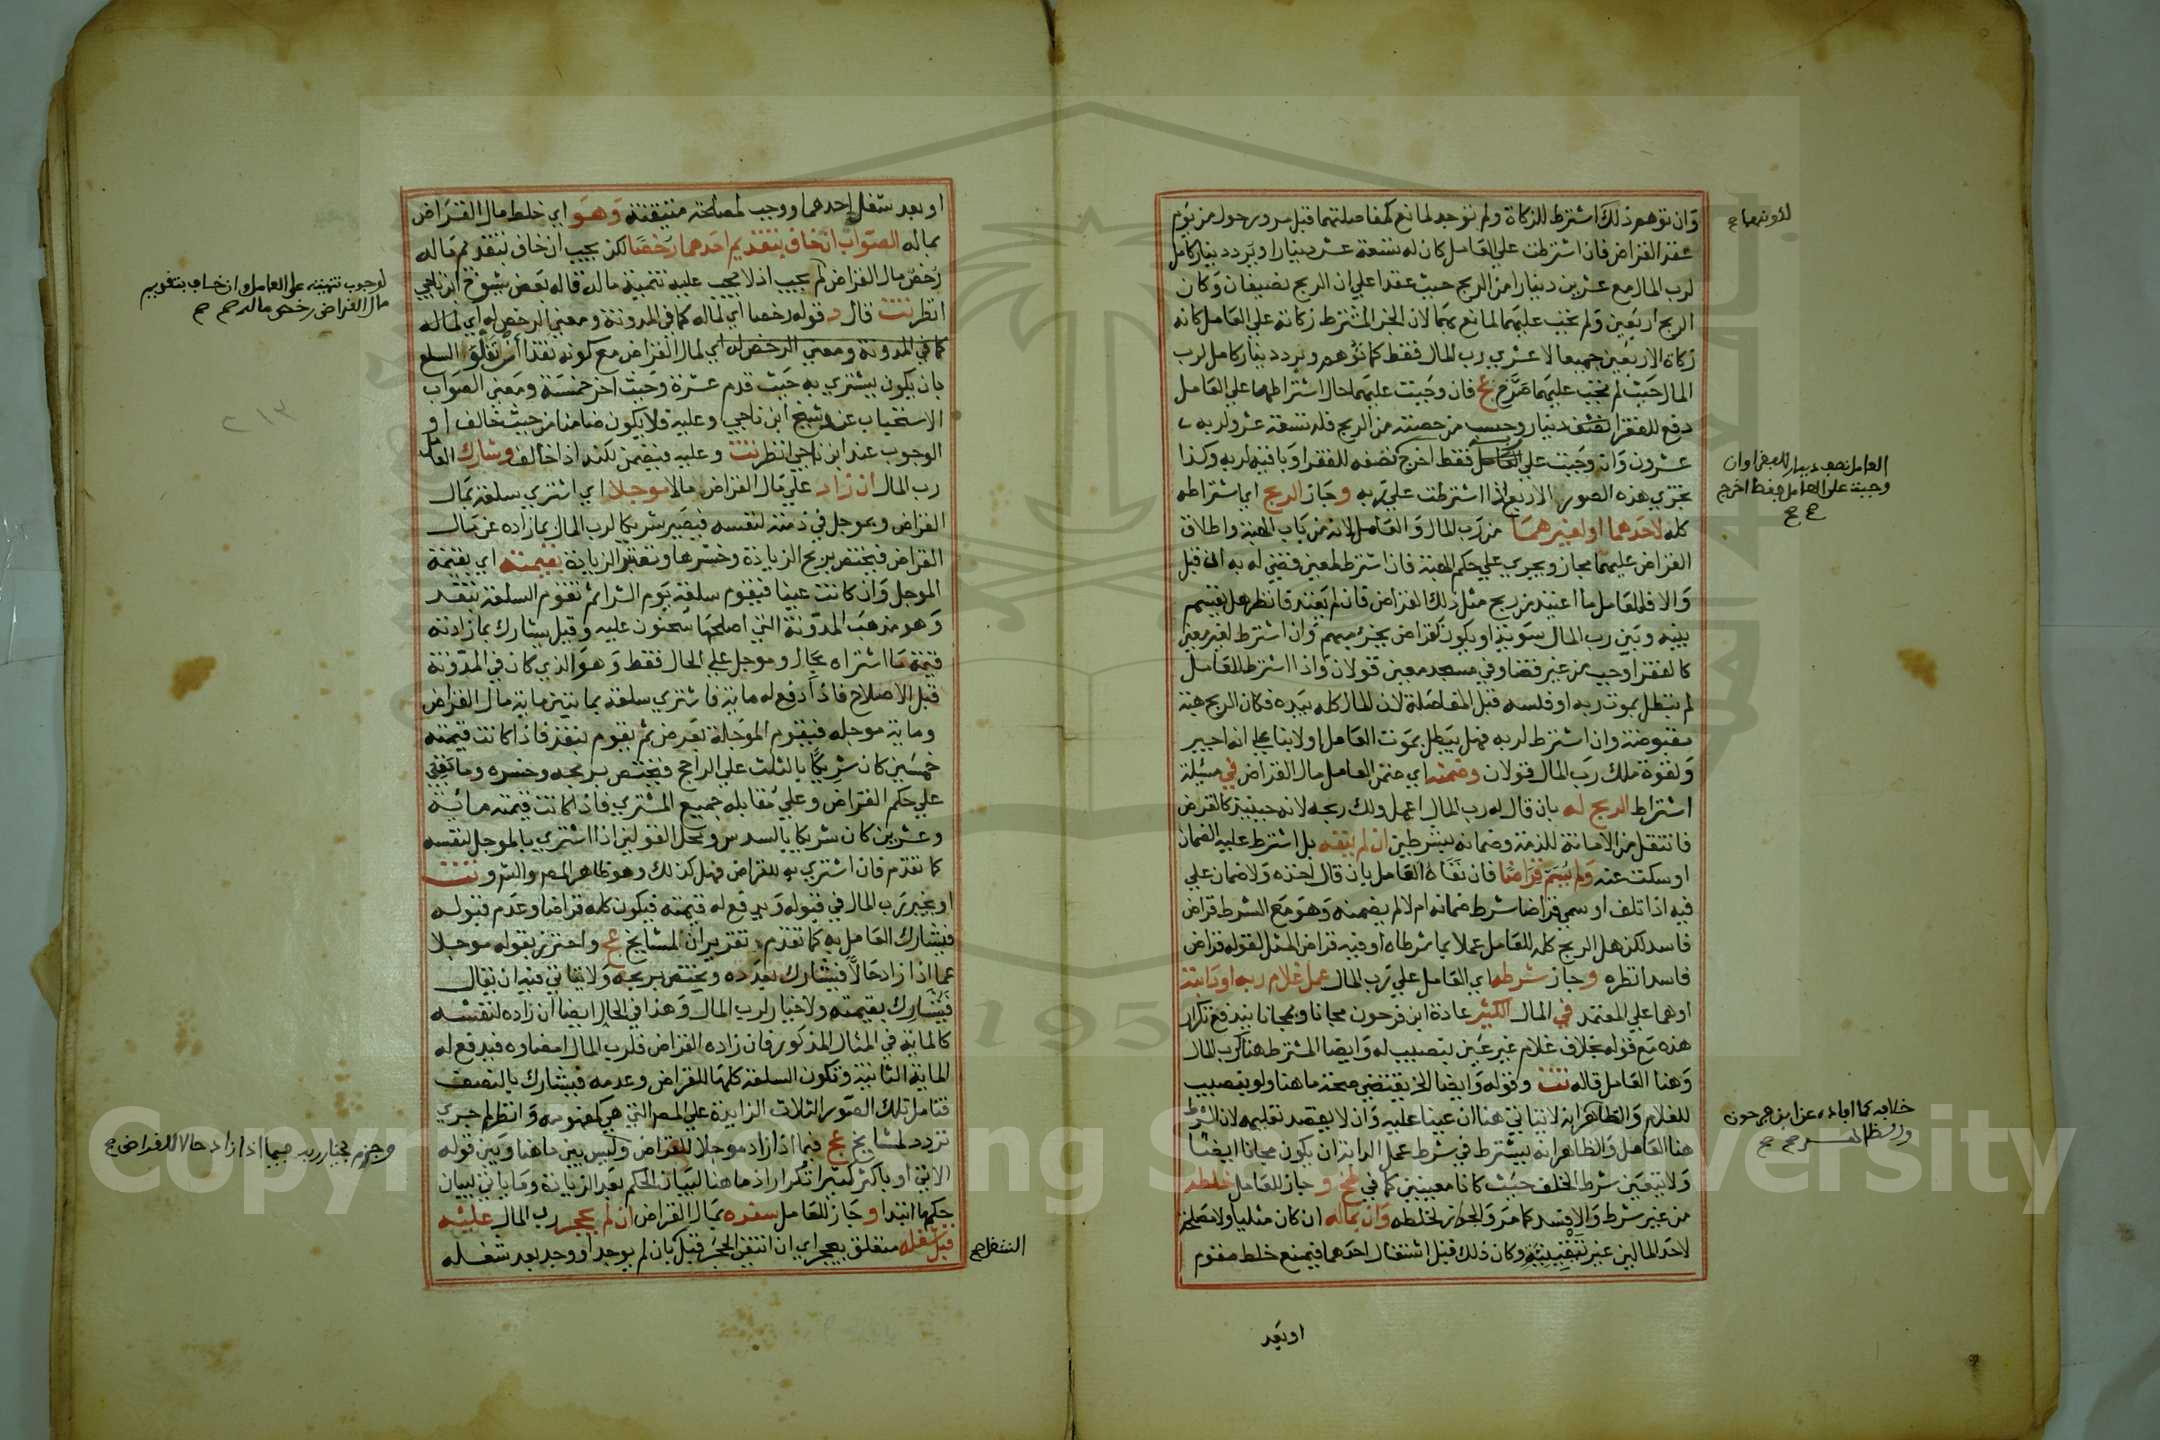 وان توهم ذلك اشترط للزكاة ولم توجد لمانع كمفاصلتهما قبل مرور حول من يوم
عقد القراض فان اشترطت علي العامل كان له تسعة عشر دينارا ويرد دينار كامل
لرب المال مع عشرين دينارا من الربح حيث عقدا علي ان الربح نصيفان وكان
الربح اربعين ولم تجب عليهما لمانع بهما لان الجزء المشترط زكاته علي العامل كانه
زكاة الاربعين جميعا لا عشري رب المال فقط كما توهم ويرد دينار كامل لرب
المال حيث لم تجب عليهما صرح عج فان وجبت عليهما حال اشتراطهما علي العامل
دفع للفقرا نصف دينار وحسب من حصته من الربح فله تسعة عشر ولربه
عشرون وان وجبت علي العامل فقط اخرج نصفه للفقرا وباقيه لربه وكذا
تجري هذه الصور الاربع اذا اشترطت علي ربه وجاز الربح اي اشتراطه
كله لاحدهما او لغيرهما من رب المال والعامل لانه من باب الهبة واطلاق
القراض عليهما مجاز ويجري علي حكم الهبة فان اشترط لمعين قضي له به ان قبل
والا فللعامل ما اعتيد من ربح مثل ذلك القراض فان لم يعتد فانظر هل يقسم
بينه وبين رب المال سوية او يكون كقراض بجزء مبهم وان اشترط لغير معين
كالفقرا وجب من غير قضا وفي مسجد معين قولان واذا اشترط للعامل
لم تبطل بموت ربه او فلسه قبل المفاصلة لان المال كله بيده فكان الربح هبة
مقبوضة وان اشترط لربه فهل يبطل بموت العامل او لا بنا علي انه اجير
ولقوة ملك رب المال قولان وضمنه اي ضمن العامل مال القراض في مسئلة
اشتراط الربح له بان قال له رب المال اعمل ولك ربحه لانه حينئذ كالقرض
فانتقل من الامانة للذمة وضمانه بشرطين ان لم ينفه بل اشترط عليه الضمان
او سكت عنه ولم يسم قراضا فان نفاه العامل بان قال اخذه ولا ضمان علي
فيه اذا تلف او سمي قراضا شرط ضمانه ام لا لم يضمنه وهو مع الشرط قراض
فاسد لكن هل الربح كله للعامل عملا بما شرطاه او فيه قراض المثل لقوله قراض
فاسد انظره وجاز شرطه اي العامل علي رب المال عمل غلام ربه او دابته
او هما علي المعتمد في المال الكثير عادة ابن فرحون مجانا وبمجانا يندفع تكرار
هذه مع قوله بخلاف غلام غير عين بنصيب له وايضا المشترط هنا كرب المال
وهنا العامل قاله تت وقوله وايضا الخ يقتضي صحة ما هنا ولو بنصيب
للغلام والظاهر انه لا يتاتي هنا ان عينا عليه وان لا يقصد تعليمه لان الشرط
هنا العامل والظاهر انه يشترط في شرط عمل الدابة ان يكون مجانا ايضا
ولا يتعين شرط الخلف حيث كانا معينين كما في طخ و جاز للعامل خلطه
من غير شرط والا فسد كما مر والجواز لخلطه وان بماله ان كان مثليا ولا مصلحة
لاحد المالين غير متيقنة وكان ذلك قبل اشتغال احدهما فيمنع خلط مقوم
او بعد
العامل نصف دينار للفقرا وان
وجبت على العامل فقط اخرج
صح
خلافه كما افاده عن ابن فرحون
او بعد شغل احدهما ووجب لمصلحة متيقنة وهو اي خلط مال القراض
بماله الصواب ان خاف بتقديم احدهما رخصا لكن يجب ان خاف بتقديم ماله
رخص مال القراض لم يجب اذ لا يجب عليه تنمية ماله قاله بعض شيوخ ابن ناجي
انظر تت قال د قوله رخصا اي لماله كما في المدونة ومعني الرخص له اي لماله
كما في المدونة ومعني الرخص له اي لمال القراض مع كونه نقدا السلع
بان يكون يشتري به حيث قدم عشرة وحيث اخر خمسة ومعني الصواب
الاستحباب عند شيخ ابن ناجي وعليه فلا يكون ضامنا من حيث خالف او
الوجوب عند ابن ناجي انظر تت وعليه فيضمن لكنه اذا خالف وشارك العامل
رب المال ان زاد علي مال القراض مالا موجلا اي اشتري سلعة بمال
القراض وبموجل في ذمته لنفسه فيصير شريكا لرب المال بما زاده عن مال
القراض فيختص بربح الزيادة وخسرها وتعتبر الزيادة بقيمته اي بقيمة
الموجل وان كانت عينا فيقوم سلعة يوم الشرا ثم تقوم السلعة بنقد
وهو مذهب المدونة التي اصلحها سحنون عليه وقيل يشارك بما زادته
قيمة ما اشتراه بحال وموجل علي الحال فقط وهو الذي كان في المدونة
قبل الاصلاح فاذا دفع له ماية فاشتري سلعة بمايتين ماية مال القراض
وماية موجله فيقوم الموجلة بعرض ثم يقوم بنقد فاذا كانت قيمته
خمسين كان شريكا بالثلث علي الراجح فيختص بربحه وخسره وما بقي
علي حكم القراض وعلي مقابله جميع المشتري فاذا كانت قيمته ماية
وعشرين كان شريكا بالسدس ومحل القولين اذا اشتري بالموجل لنفسه
كما تقدم فان اشتري به للقراض فهل كذلك وهو ظاهر المص والشرو تت
او يخير رب المال في قبوله ويدفع له قيمته فيكون كله قراضا وعدم قبوله
فيشارك العامل به كما تقدم تقريران لمشايخ عج واحترز بقوله موجلا
عما اذا زاد حالا فيشارك بعدده ويختص بربحه ولا يتاتي فيه ان يقال
فيشارك بقيمته ولا خيار لرب المال وهذا في الحال ايضا ان زاده لنفسه
كالماية في المثال المذكور فان زاده القراض فلرب المال امضاوه فيدفع له
الماية الثانية وتكون السلعة كلها للقراض وعدمه فيشارك بالنصف
فتامل تلك الصور الثلاث الزايدة علي المص التي هي كمفهومه وانظر لم جري
تردد لمشايخ عج فيما اذا زاد موجلا للقراض وليس بين ما هنا وبين قوله
الاتي او باكثر كثيرا تكرار اذ ما هنا لبيان الحكم بعد الزيادة وما ياتي لبيان
حكمها ابتدا و جاز للعامل سفره بمال القراض ان لم يحجر رب المال عليه
قبل شغله متعلق بيحجر اي ان انتفي الحجر قبل بان لم يوجد او وجد بعد شغله
لوجوب تنميته على العامل وان خاف بتقديم
مال القراض رخص ماله صح
وجزم بخيار ربه فيما اذا زاد حالا للقراض صح
Copyright © King Saud University
195